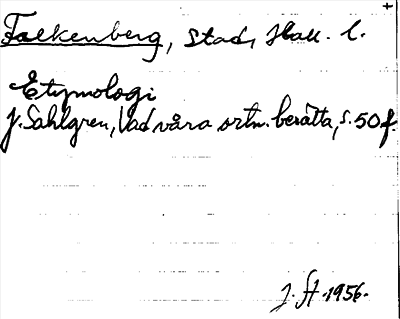 Falkenberg, stad, Hall. l.
Etymologi
J. Sahlgren, Vad våra ortn. berätta, s. 50 f.
J. St. 1956.